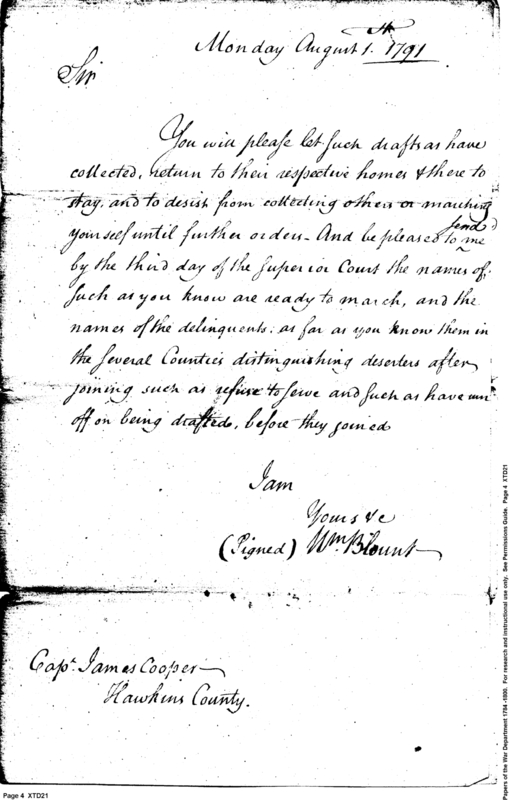 Monday August 1.st 1791
Sir
You will please let such drafts as have
collected, return to their respective homes & there to
stay, and to desist from collecting others or marching
yourself until further orders - And be pleased to send me
by the third day of the Superior Court the names of
such as you know are ready to march, and the
names of the delinquents: as far as you know them in
the several Counties distinguishing deserters after
joining such as refuse to serve and such as have run
off on being drafted, before they joined
I am
Yours &c
(Signed) Wm Blount
Capt. James Cooper
Hawkins County.
Page 4 XTD21
Papers of the War Department 1784-1800. For research and instructional use only. See Permissions Guide. Page 4 XTD21